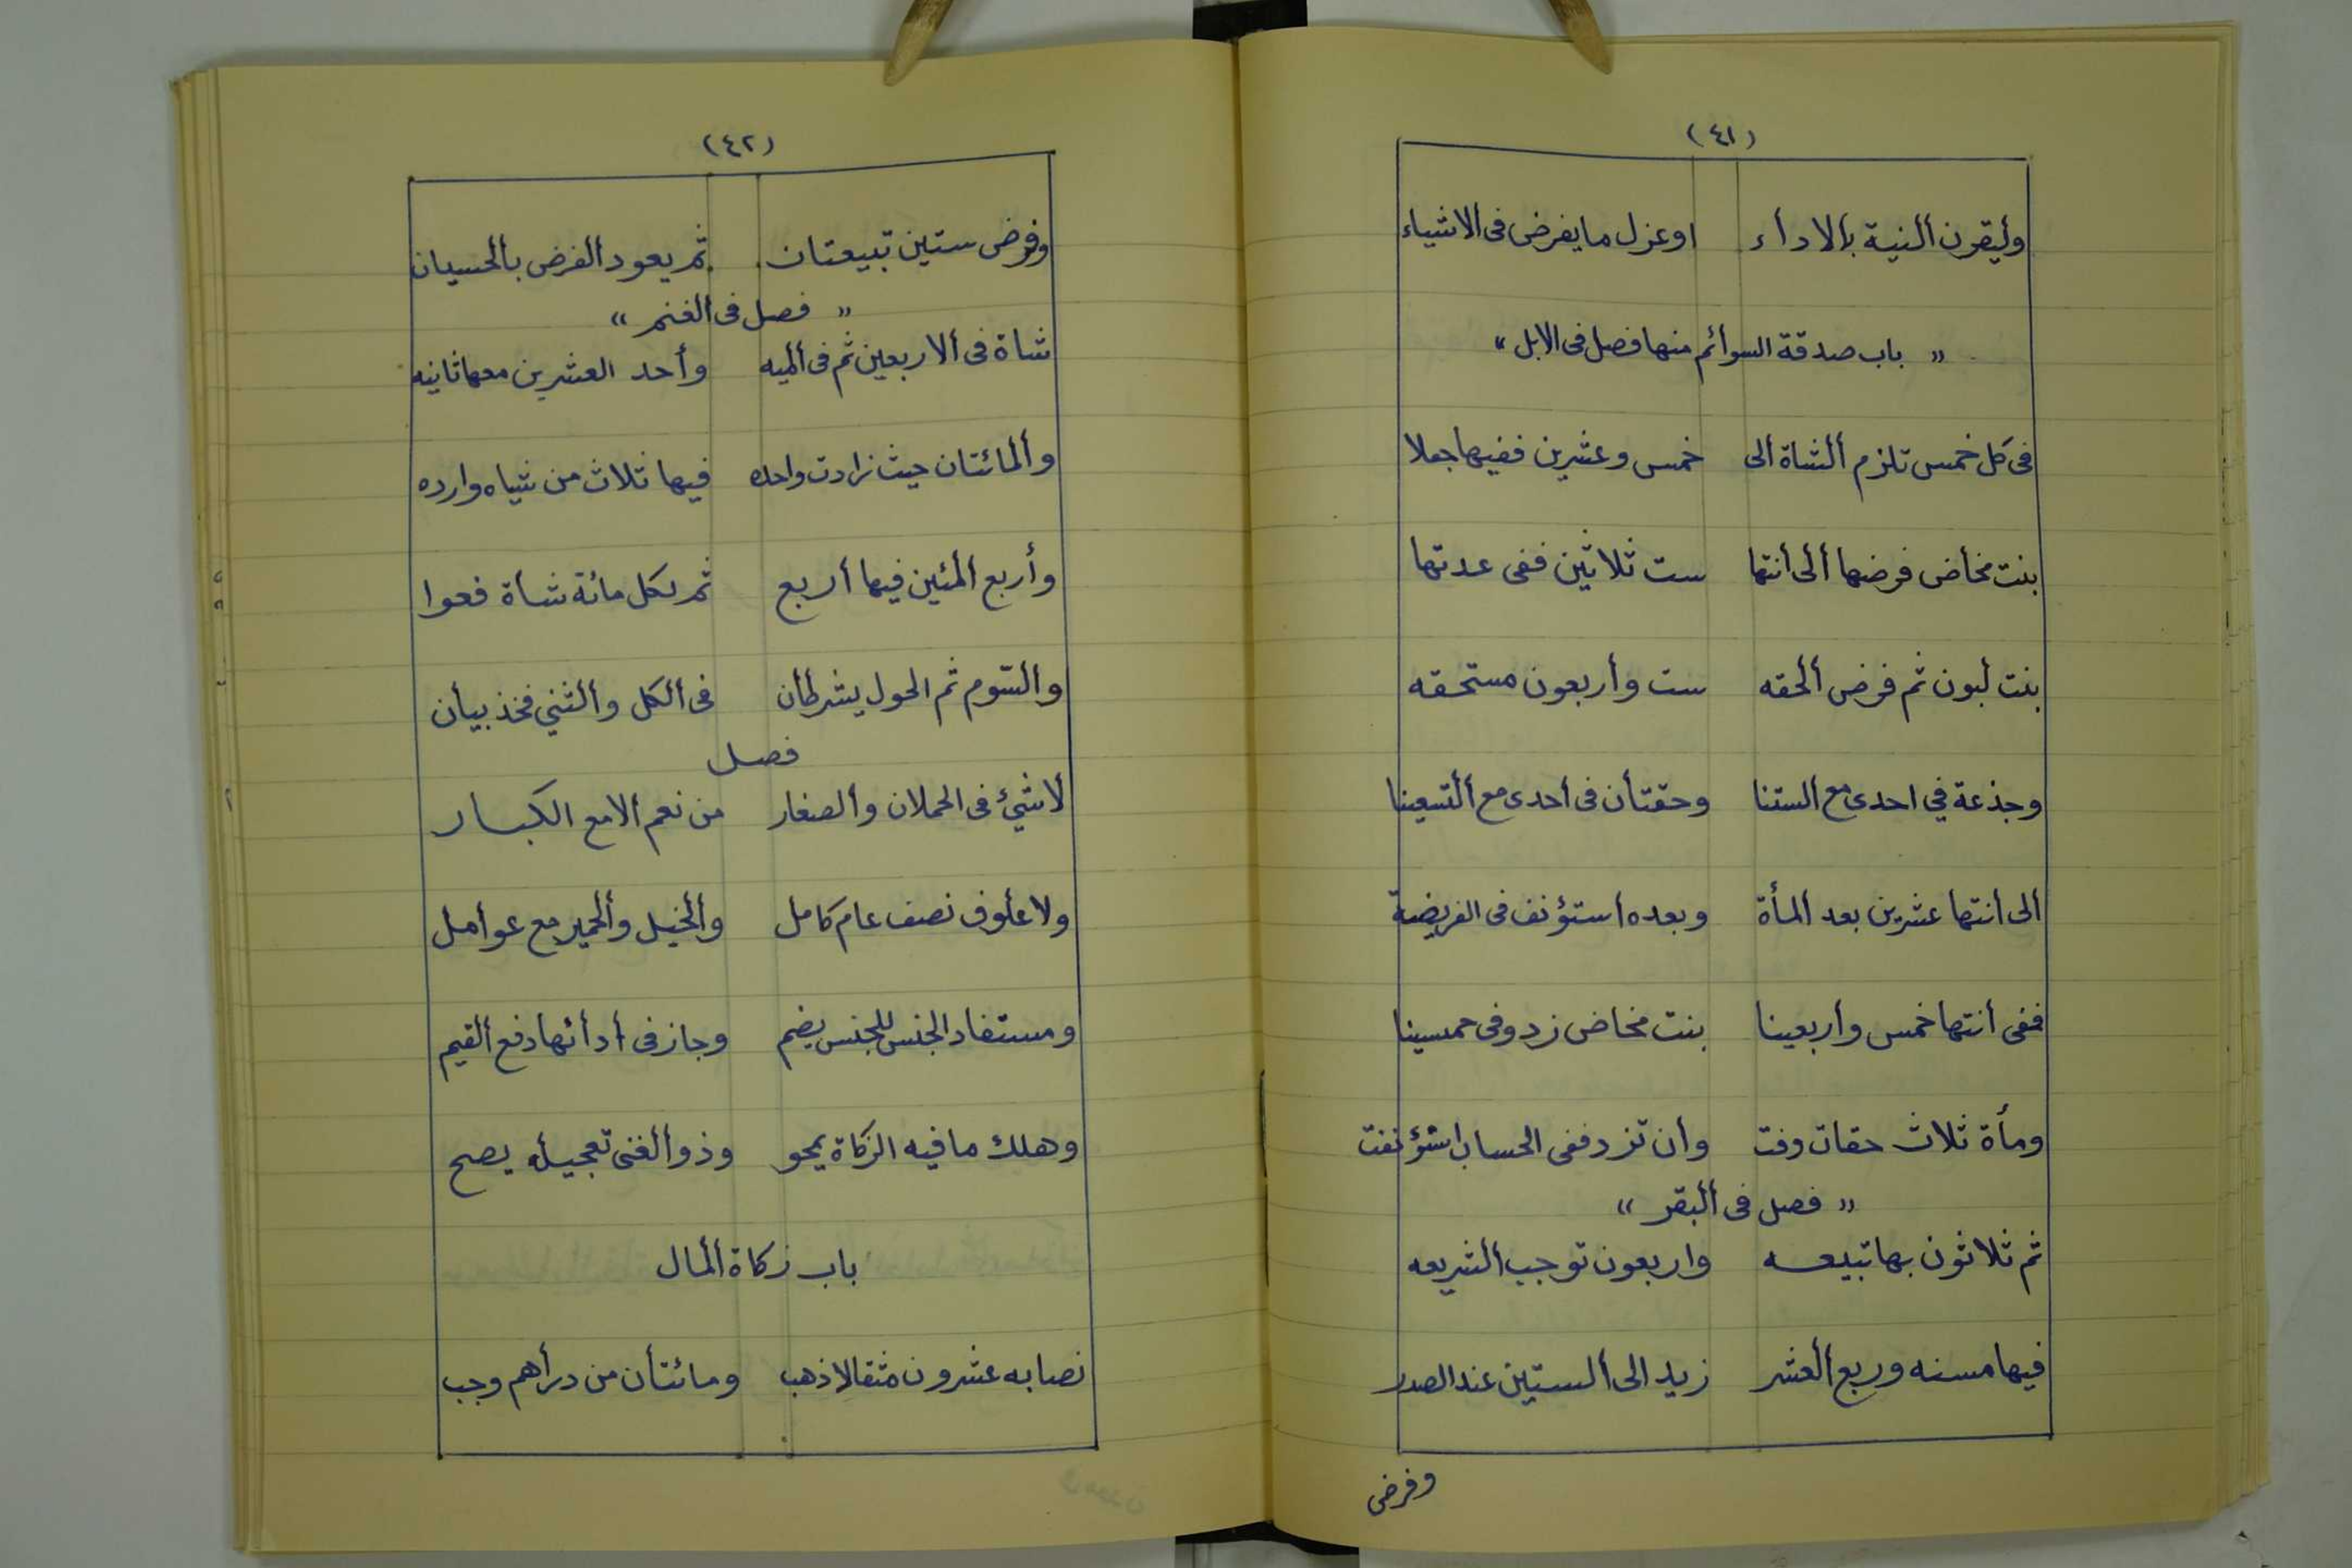 (٤١)
وليقرن النية بالاداء اوعزل مايفرض فى الاشياء
" باب صدقة السوائم منها فصل فى الابل "
فى كل خمس تلزم الشاة الى خمس وعشرين ففيها جعلا
بنت مخاض فرضها الى انتها ست ثلاثين ففى عدتها
بنت لبون ثم فرض الحقه ست وأربعون مستحقه
وجذعة في احدى مع الستنا وحقتان فى احدى مع التسعينا
الى انتها عشرين بعد المأة وبعده استؤنف فى الفريضة
ففى انتها خمس واربعينا بنت مخاض زد وفى خمسينا
ومأة ثلاث حقات وفت وان تزد ففى الحساب استؤنفت
" فصل فى البقر "
ثم ثلاثون بها تبيعه واربعون توجب الشريعه
فيها مسنه وربع العشر زيد الى الستين عند الصدر
وفرض
(٤٢)
وفرض ستين تبيعتان ثم يعود الفرض بالحسبان
" فصل فى الغنم "
شاة فى الاربعين ثم فى الميه وأحد العشرين معها ثانيه
والمائتان حيث زادت واحده فيها ثلاث من شياه وارده
وأربع المئين فيها أربع ثم لكل مائة شاة فعوا
والسوم ثم الحول يشرطان فى الكل والثني فخذ بيان
فصل
لاشئ فى الحملان والصغار من نعم الامع الكبار
ولا علوف نصف عام كامل والخيل والحمير مع عوامل
ومستفاد الجنس للجنس يضم وجاز فى أدائها دفع القيم
وهلك مافيه الزكاة يمحو وذو الغنى تعجيله يصح
باب زكاة المال
نصابه عشرون مثقالا ذهب ومائتان من دراهم وجب